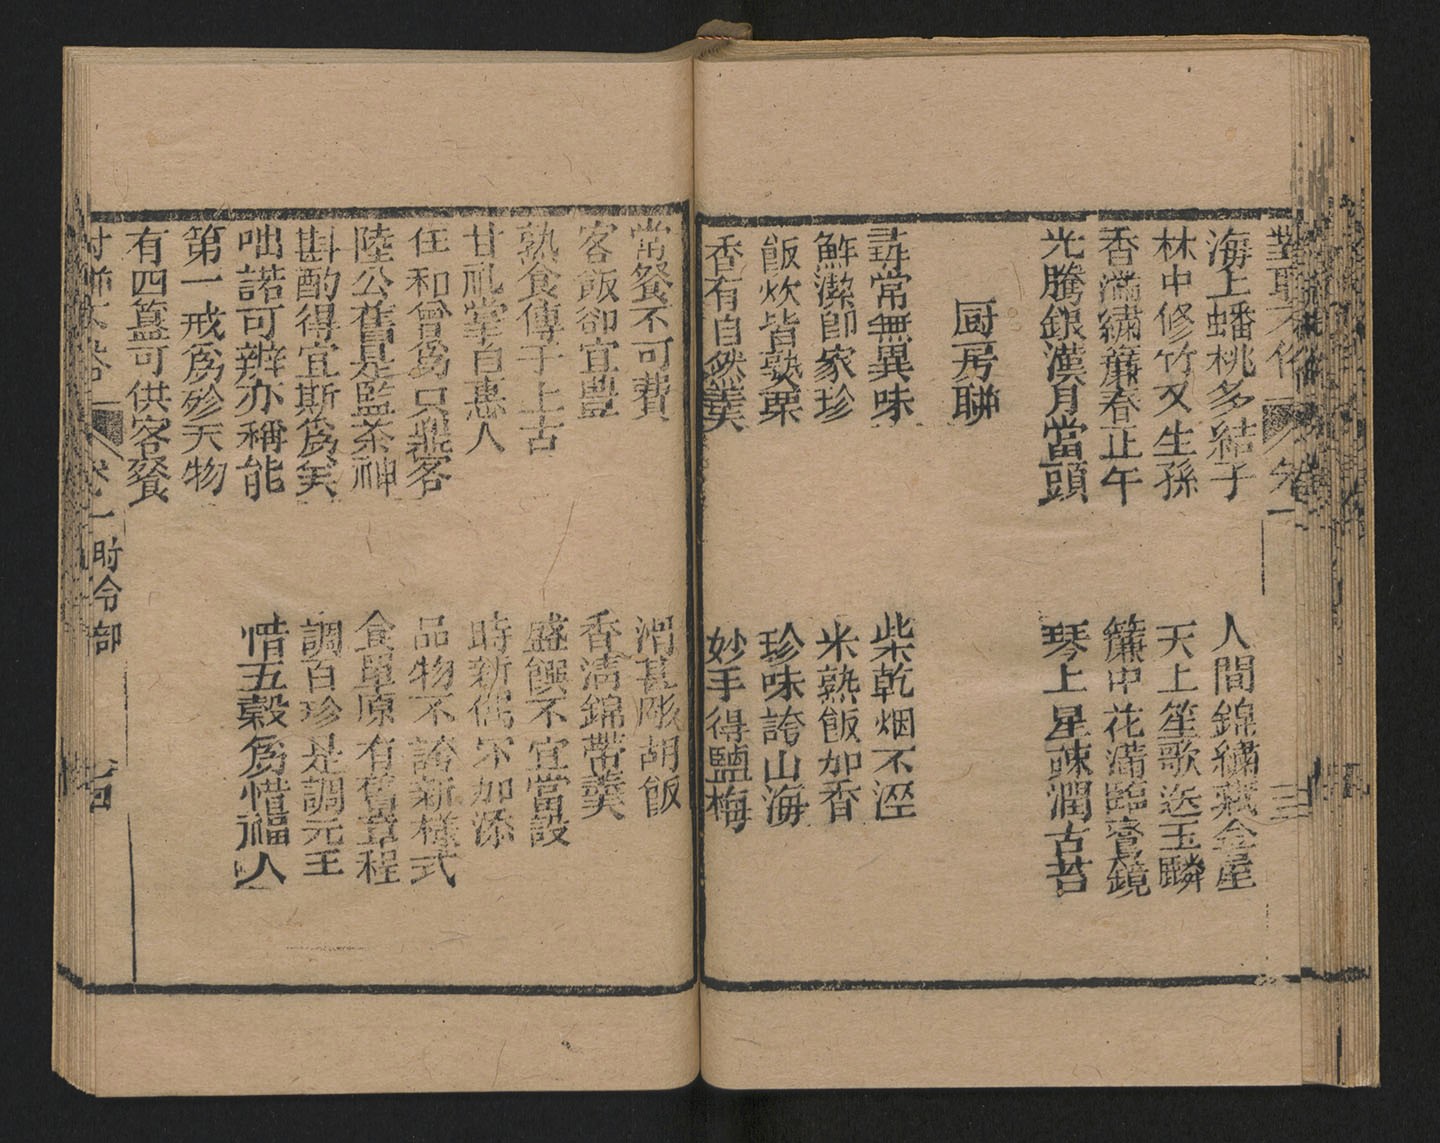 海上蟠桃多結子
人間錦繡藏金屋
林中修竹又生孫
天上笙歌送玉麟
香滿繡簾春正午
簾中花滿臨鸞鏡
光騰銀漢月當頭
琴上星疎潤古苔
厨房聯
尋常無異味
柴乾烟不溼
鮮潔卽家珍
米熟飯加香
飯炊皆熟粟
珍味誇山海
香有自然羹
妙手得鹽梅
常餐不可費
滑甚彫胡飯
客飯卻宜豐
香淸錦帶羹
熟食傳于上古
盛饌不宜當設
甘瓜掌自惠人
時新偶不加添
任和曾爲只鼎客
品物不誇新樣式
陸公舊是監茶神
食單原有舊章程
斟酌得宜斯爲美
調百珍是調元王
咄諾可辦亦稱能
惜五穀爲惜福人
第一戒爲殄天物
有四簋可供客餐
卷一時令部